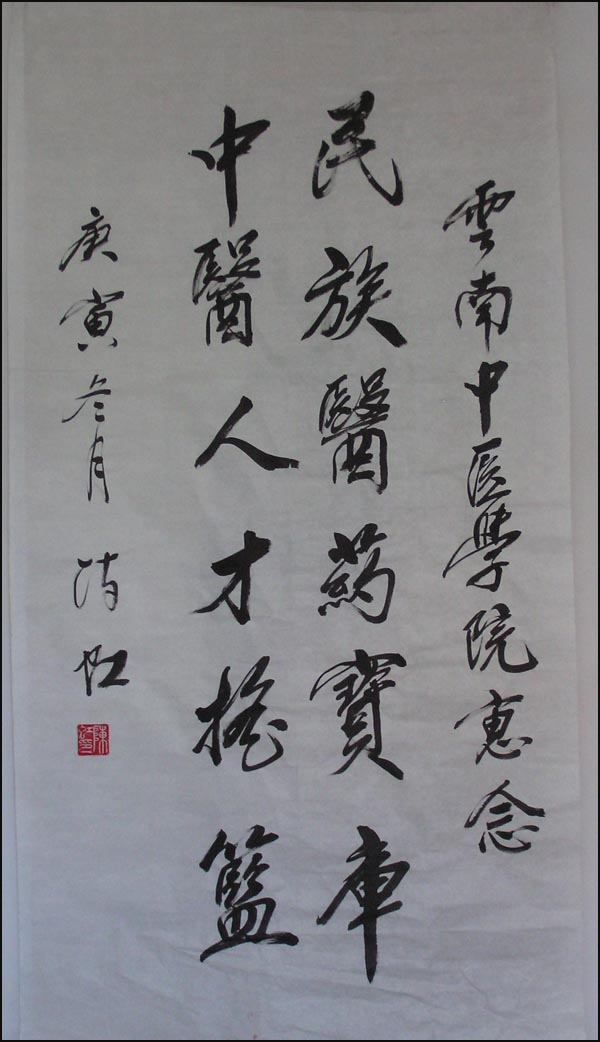 雲南中医學院惠念
民族醫葯寶庫
中醫人才搖籃
庚寅叁月